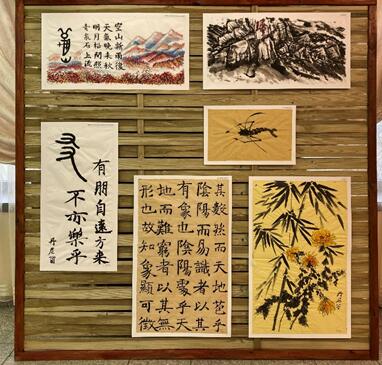 空山新雨後
天氣晚来秋
明月松間照
清泉石上流
友
有朋自遠方来
不亦樂乎
其數然而天地苞乎
陰陽而易識者以其
有象也陰陽處乎天
地而難窮者以其無
形也故知象顯可徵